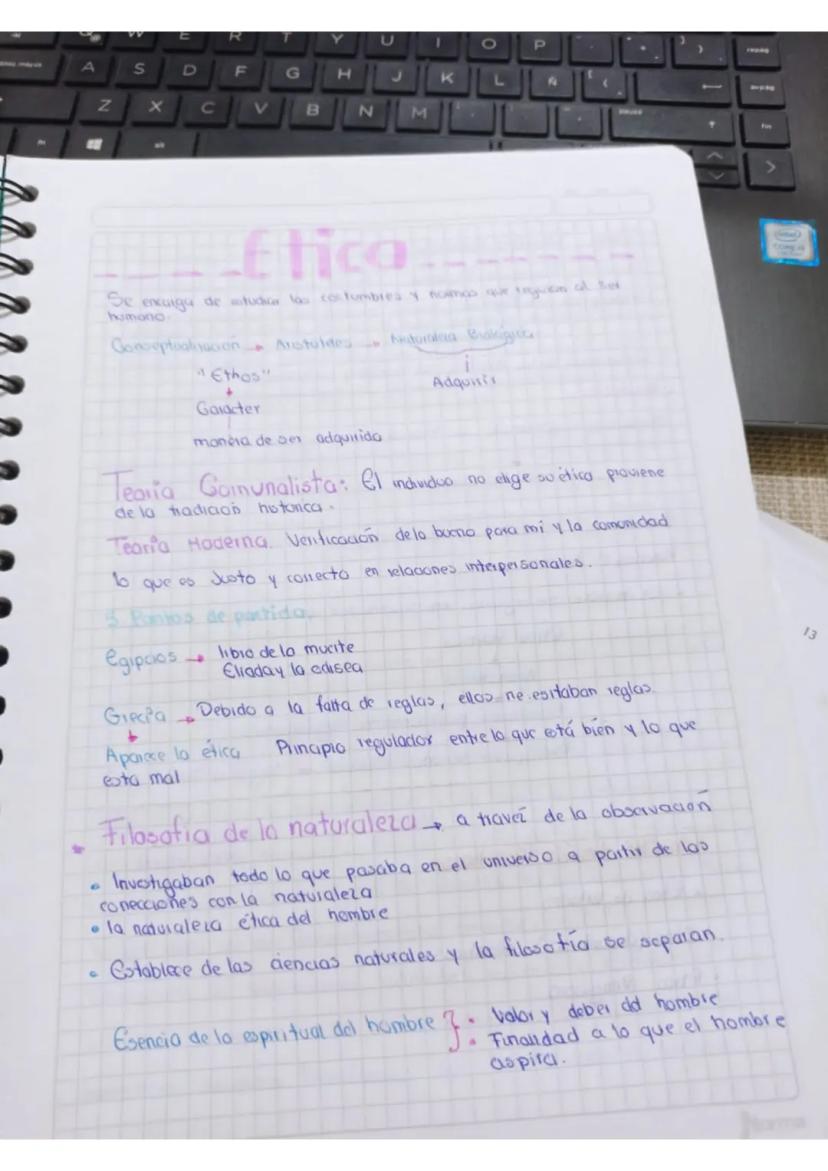 Q W E R T Y U I O P
A S D F G H J K L Ñ
Z X C V B N M
intel
Etica
Se encarga de estudiar las costumbres y normas que regulan al ser
humano.
Conceptualización → Aristóteles → Naturaleza Biológica
"Ethos"
Adquirir
Carácter
manera de ser adquirida
Teoría Comunalista: El individuo no elige su ética proviene
de la tradición historica.
Teoría Moderna. Verificación de lo bueno para mi y la comunidad
lo que es Justo y correcto en relaciones interpersonales.
3 Puntos de partida.
Egipcios → libro de la muerte
Eliada y la odisea
Grecia → Debido a la falta de reglas, ellos necesitaban reglas.
Aparece la ética Principio regulador entre lo que está bien y lo que
esta mal
Filosofia de la naturaleza → a travéz de la observación
• Investigaban todo lo que pasaba en el universo a partir de las
conecciones con la naturaleza
• la naturaleza ética del hombre
• Establece de las ciencias naturales y la filosofía se separan.
Esencia de la espiritual del hombre } • Valor y deber del hombre
• Finalidad a lo que el hombre
aspira.
13
norma